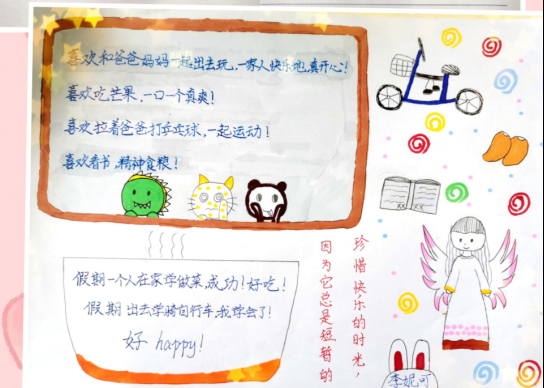 喜欢和爸爸妈妈一起出去玩，一家人快乐地，真开心！
喜欢吃芒果，一口一个真爽！
喜欢拉着爸爸打乒乓球，一起运动！
喜欢看书，精神食粮！
假期一个人在家学做菜，成功！好吃！
假期出去学骑自行车，我学会了！
好 happy！
珍惜快乐的时光，
因为它总是短暂的
李妮可